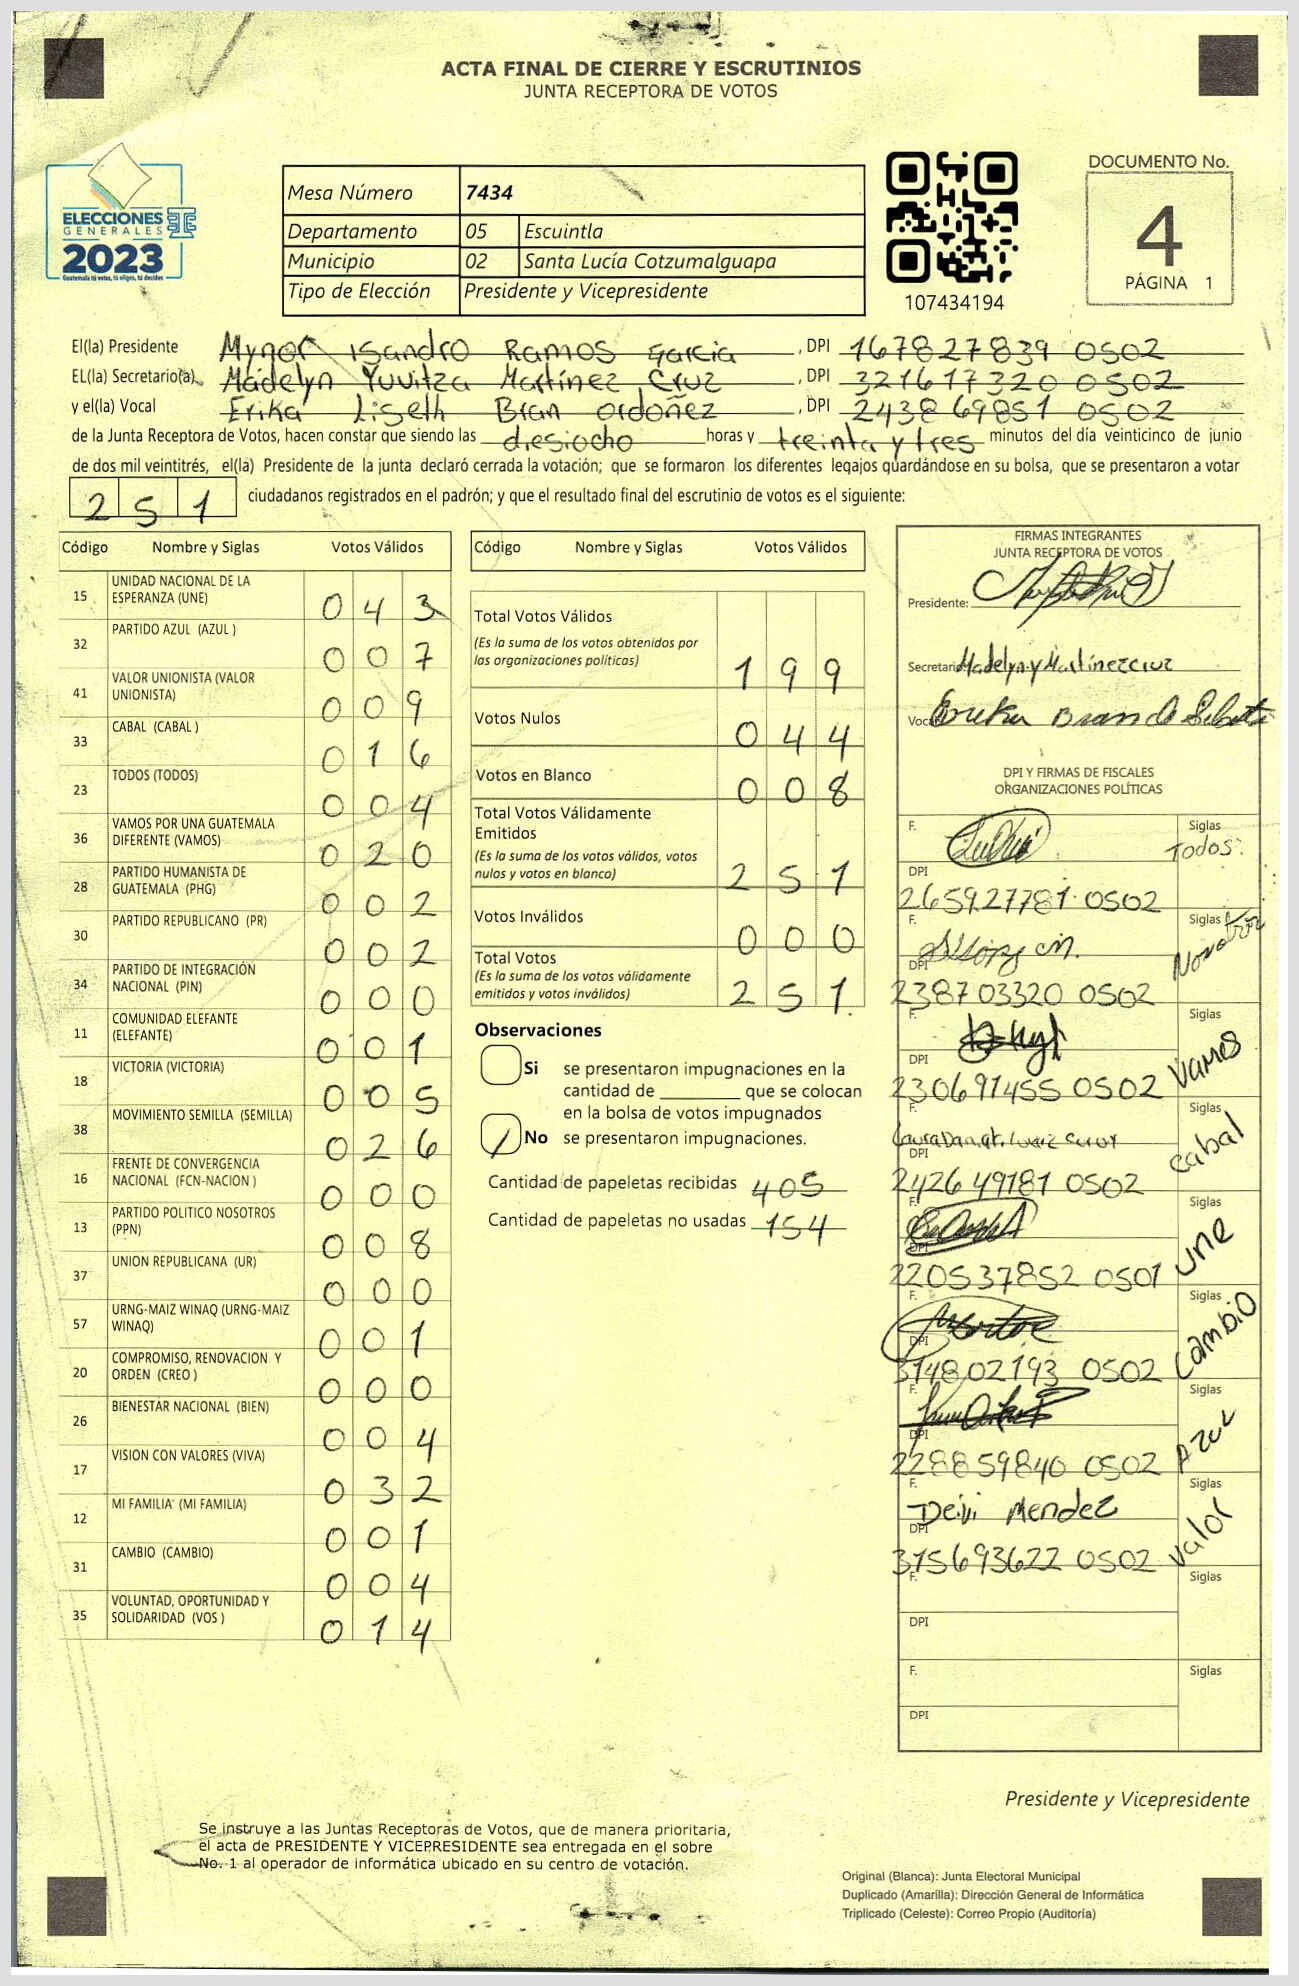 ACTA FINAL DE CIERRE Y ESCRUTINIOS
JUNTA RECEPTORA DE VOTOS
ELECCIONES
GENERALES
2023
Guatemala tú votas, tú eliges, tú decides
Mesa Número 7434
Departamento 05 Escuintla
Municipio 02 Santa Lucía Cotzumalguapa
Tipo de Elección Presidente y Vicepresidente
107434194
DOCUMENTO No.
4
PÁGINA 1
El(la) Presidente Mynor Isandro Ramos Garcia, DPI 167827839 0502
EL(la) Secretario(a) Madelyn Yuvitza Martínez Cruz, DPI 321617320 0502
y el(la) Vocal Erika Liseth Bran Ordoñez, DPI 243869851 0502
de la Junta Receptora de Votos, hacen constar que siendo las diesiocho horas y treinta y tres minutos del día veinticinco de junio
de dos mil veintitrés, el(la) Presidente de la junta declaró cerrada la votación; que se formaron los diferentes legajos guardándose en su bolsa, que se presentaron a votar
251 ciudadanos registrados en el padrón; y que el resultado final del escrutinio de votos es el siguiente:
Código Nombre y Siglas Votos Válidos
15 UNIDAD NACIONAL DE LA ESPERANZA (UNE) 043
32 PARTIDO AZUL (AZUL ) 007
41 VALOR UNIONISTA (VALOR UNIONISTA) 009
33 CABAL (CABAL ) 016
23 TODOS (TODOS) 004
36 VAMOS POR UNA GUATEMALA DIFERENTE (VAMOS) 020
28 PARTIDO HUMANISTA DE GUATEMALA (PHG) 002
30 PARTIDO REPUBLICANO (PR) 002
34 PARTIDO DE INTEGRACIÓN NACIONAL (PIN) 000
11 COMUNIDAD ELEFANTE (ELEFANTE) 001
18 VICTORIA (VICTORIA) 005
38 MOVIMIENTO SEMILLA (SEMILLA) 026
16 FRENTE DE CONVERGENCIA NACIONAL (FCN-NACION ) 000
13 PARTIDO POLITICO NOSOTROS (PPN) 008
37 UNION REPUBLICANA (UR) 000
57 URNG-MAIZ WINAQ (URNG-MAIZ WINAQ) 001
20 COMPROMISO, RENOVACION Y ORDEN (CREO ) 000
26 BIENESTAR NACIONAL (BIEN) 004
17 VISION CON VALORES (VIVA) 032
12 MI FAMILIA (MI FAMILIA) 001
31 CAMBIO (CAMBIO) 004
35 VOLUNTAD, OPORTUNIDAD Y SOLIDARIDAD (VOS ) 014
Código Nombre y Siglas Votos Válidos
Total Votos Válidos
(Es la suma de los votos obtenidos por
las organizaciones políticas) 199
Votos Nulos 044
Votos en Blanco 008
Total Votos Válidamente
Emitidos
(Es la suma de los votos válidos, votos
nulos y votos en blanco) 251
Votos Inválidos 000
Total Votos
(Es la suma de los votos válidamente
emitidos y votos inválidos) 251
Observaciones
Si se presentaron impugnaciones en la
cantidad de ________ que se colocan
en la bolsa de votos impugnados
No se presentaron impugnaciones.
Cantidad de papeletas recibidas 405
Cantidad de papeletas no usadas 154
FIRMAS INTEGRANTES
JUNTA RECEPTORA DE VOTOS
Presidente:
Secretario Madelyn y Martínez cruz
Vocal Erika Bran
DPI Y FIRMAS DE FISCALES
ORGANIZACIONES POLÍTICAS
F. Siglas Todos.
DPI 265927781 0502
F. Siglas
DPI 238703320 0502
F. Siglas Vamos
DPI 230691455 0502
F. Siglas cabal
DPI 242649181 0502
F. Siglas une
DPI 220537852 0501
F. Siglas cambio
DPI 314802193 0502
F. Siglas Azul
DPI 228859840 0502
F. Deivi Mendez Siglas valor
DPI 315693622 0502
F. Siglas
DPI
F. Siglas
DPI
Presidente y Vicepresidente
Se instruye a las Juntas Receptoras de Votos, que de manera prioritaria,
el acta de PRESIDENTE Y VICEPRESIDENTE sea entregada en el sobre
No. 1 al operador de informática ubicado en su centro de votación.
Original (Blanca): Junta Electoral Municipal
Duplicado (Amarilla): Dirección General de Informática
Triplicado (Celeste): Correo Propio (Auditoría)